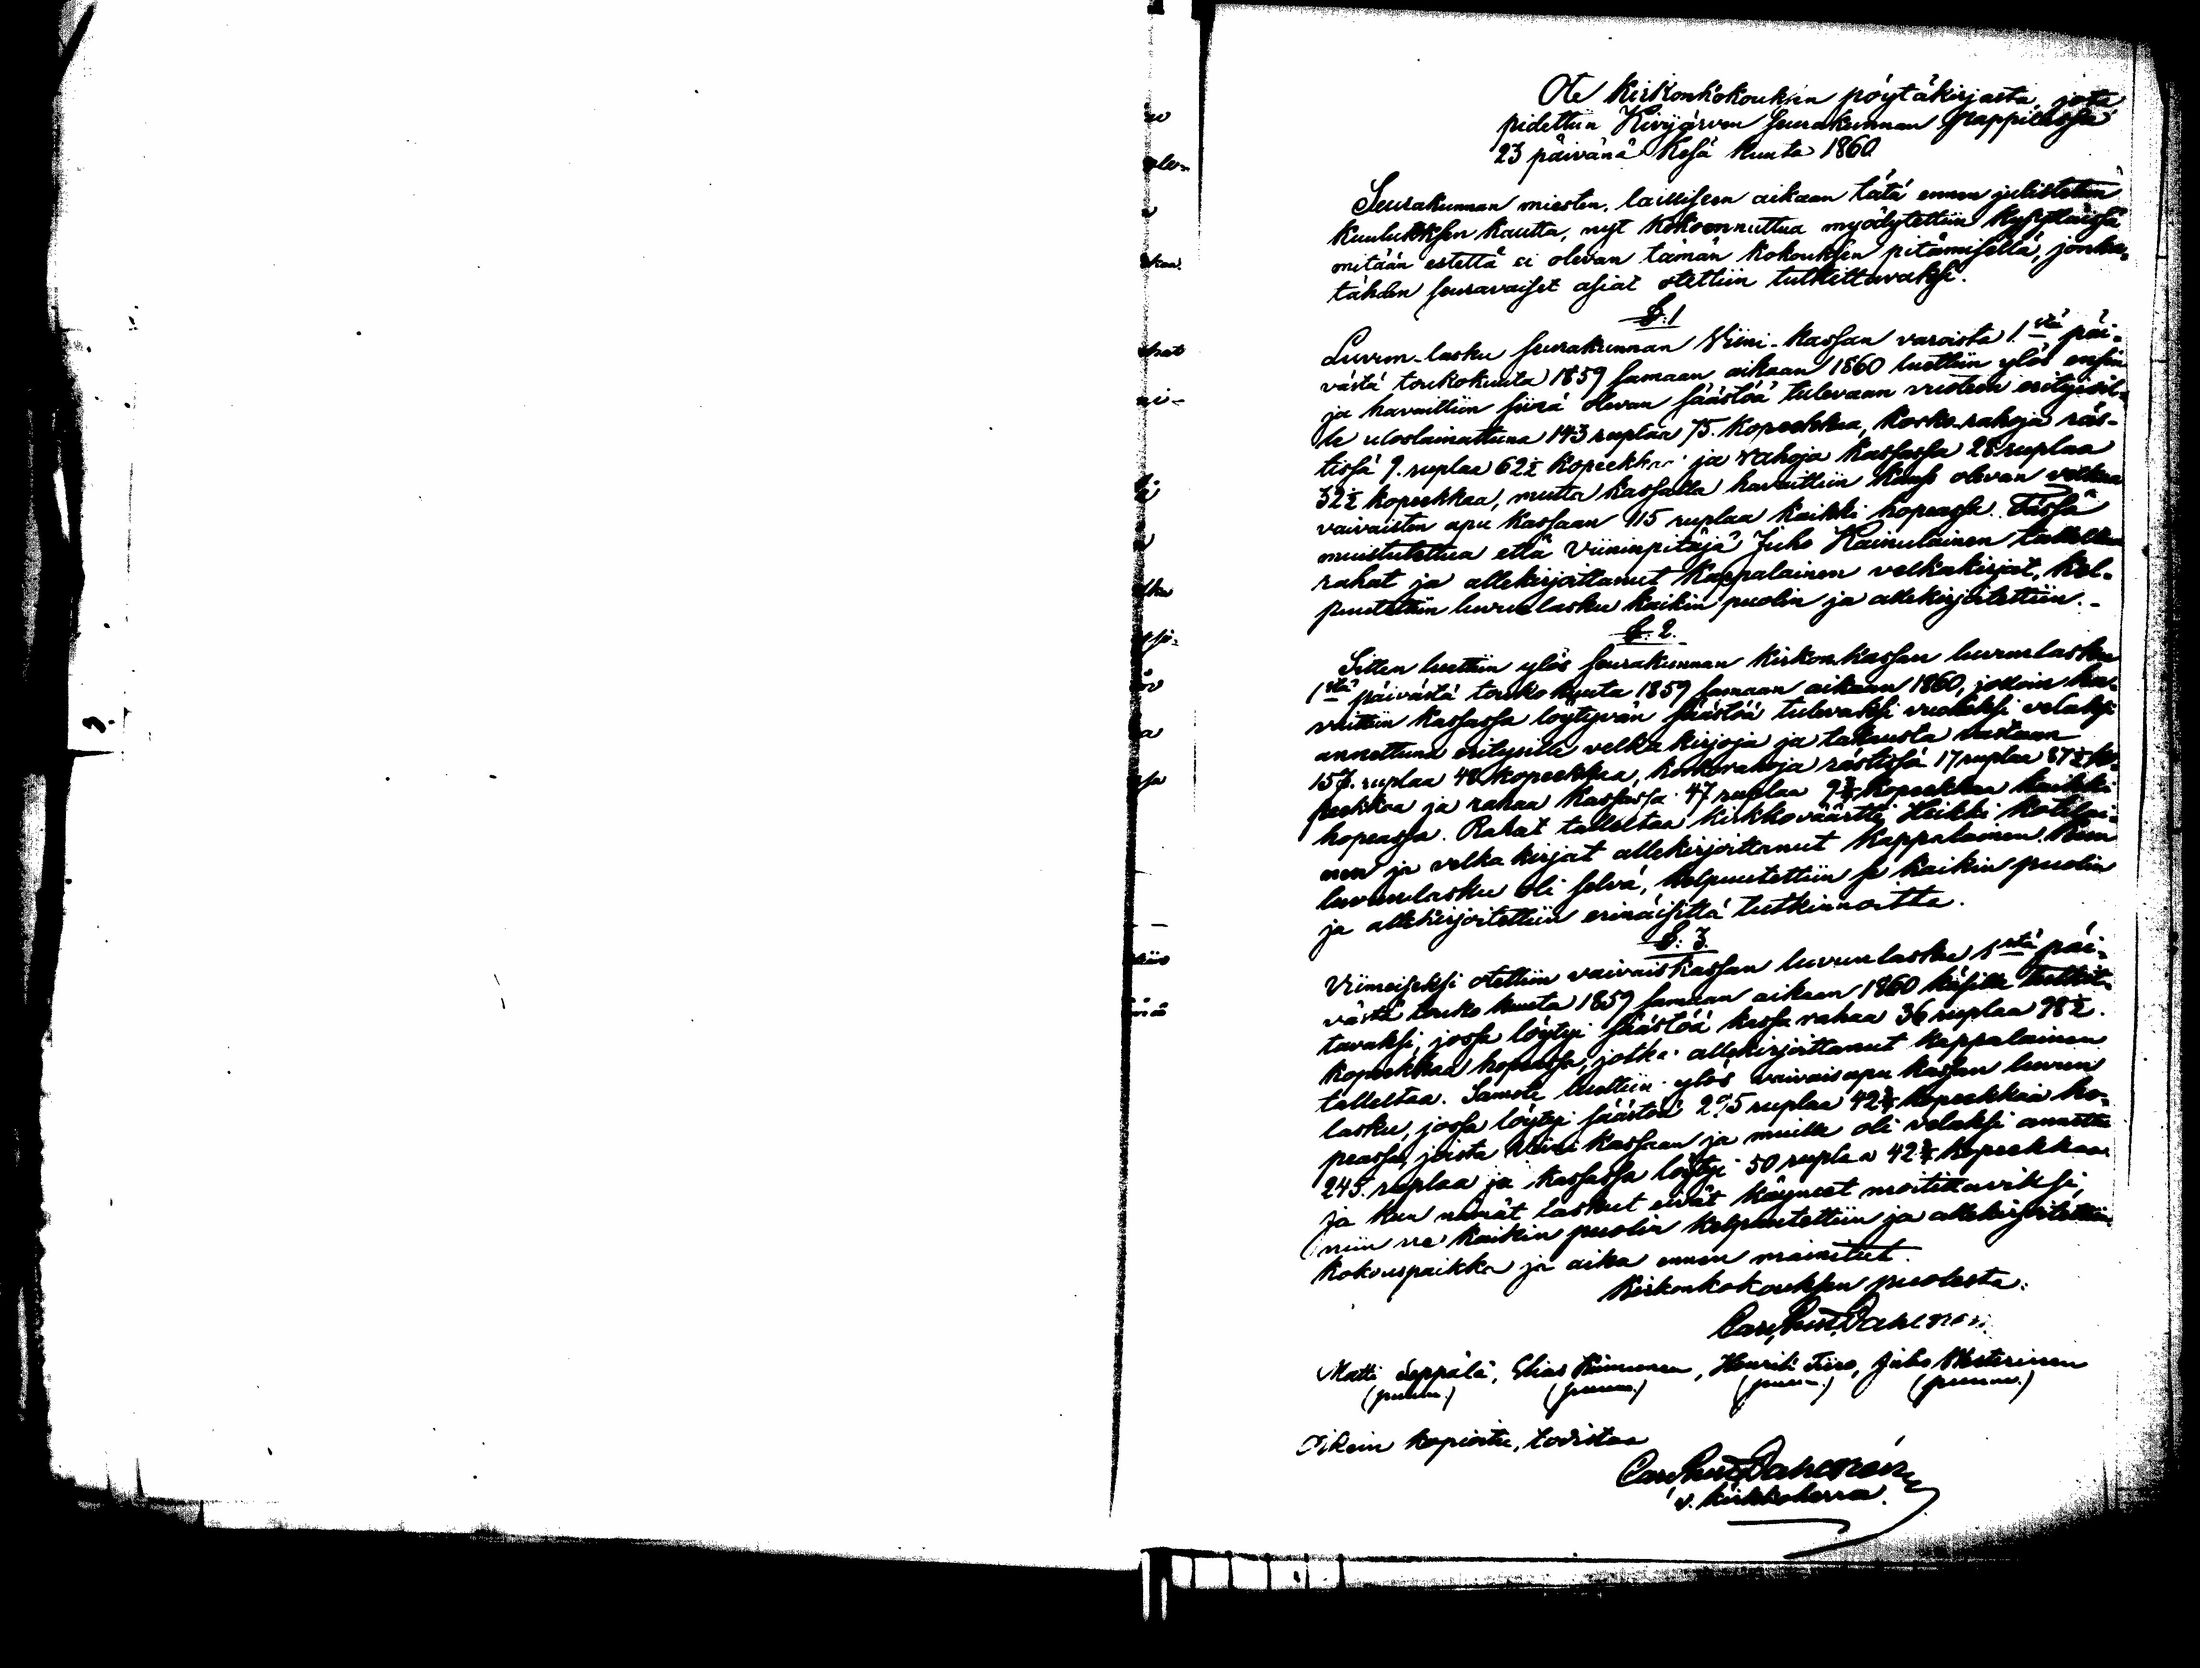 Ote Kirkonkokouksen pöytäkirjasta, jota
pidettiin Kivijärven seurakunnan pappilassa
23 päivänä Kesä kuuta 1860.
Seurakunnan miesten, lailliseen aikaan tätä ennen julistetun
kuulutuksen kautta, nyt kokoonnuttua myödytettiin kysyttäissä
mitään estettä ei olevan tämän kokouksen pitämisellä, jonka
tähden seuraavaiset asiat otettiin tutkittavaksi.
§. 1
Luvun-lasku seurakunnan Viini-kassan varoista 1stä päi-
västä toukokuuta 1859 samaan aikaan 1860 luettiin ylös ensin
ja havaittiin siinä olevan säästöä tulevaan vuoteen erityisil-
le uloslainattuna 143 ruplaa 75. kopeekkaa, korko-rahoja räs-
tissä 9. ruplaa 62½ kopeekkaa ja rahoja kassassa 28 ruplaa
32½ kopeekkaa, mutta kassalla havaittiin olevan velkaa
vaivaisten apu kassaan 115 ruplaa kaikki hopeassa. Tässä
muistutettua että Viininpitäjä Juho Kainulainen tallettaa
rahat ja allekirjoittanut Kappalainen velkakirjat, kel-
puutettiin luvunlasku kaikin puolin ja allekirjoitettiin.-
§. 2.
Sitten luettiin ylös seurakunnan Kirkon kassan luvunlasku
1stä päivästä toukokuuta 1859 samaan aikaan 1860, jolloin ha-
vaittiin kassassa löytyvän säästöä tulevaksi vuodeksi velaksi
annettuna erityisille velkakirjoja ja takausta vastaan
157. ruplaa 48 kopeekkaa, korkorahoja rästissä 17 ruplaa 87½ ko-
peekkaa ja rahaa kassassa 47 ruplaa 9¾ kopeekkaa kaikki
hopeassa. Rahat tallettaa kirkkoväärtti Heikki Kotilai-
nen ja velka kirjat allekirjoittanut Kappalainen. Kun
luvunlasku oli selvä, kelpuutettiin se kaikin puolin
ja allekirjoitettiin erinäisittä tutkinnoitta.
§. 3.
Viimeiseksi otettiin vaivaiskassan luvunlasku 1stä päi-
västä touko kuuta 1859 samaan aikaan 1860 käsille tutkit-
tavaksi, jossa löytyi säästöä kassa rahaa 36 ruplaa 98½.
kopeekkaa hopeassa, jotka allekirjoittanut kappalainen
tallettaa. Samote luettiin ylös vaivaisapu kassan luvun
lasku, jossa löytyi säästöä 295 ruplaa 42¾ kopeekkaa ho-
peassa, joista Viini kassaan ja muille oli velaksi annettu
245. ruplaa ja kassassa löytyi 50 ruplaa 42¾ kopeekkaa.
Ja kun nämät laskut eivät käyneet moitittaviksi,
niin ne kaikin puolin kelpuutettiin ja allekirjoitettiin.
Kokouspaikka ja aika ennen mainitut.
Kirkonkokouksen puolesta:
Matti Seppälä, Elias Kinnunen, Henrik Tiiro, Juho Westerinen
(puum.) (puum.) (puum.) (puum.)
Oikein kopioitu, todistaa
v. kirkkoherra.